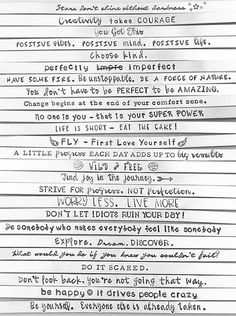 Stars don't shine without darkness
Creativity takes COURAGE
You Got This
POSITIVE VIBES. POSITIVE MIND. POSITIVE LIFE.
Choose kind.
perfectly impre imperfect
HAVE SOME FIRE. Be unstoppable. BE A FORCE OF NATURE.
You don't have to be PERFECT to be AMAZING.
Change begins at the end of your comfort zone.
no one is you - that is your SUPER POWER
LIFE IS SHORT - EAT THE CAKE!
FLY - First Love Yourself
A LITTLE PROGRESS EACH DAY ADDS UP TO big results
WILD & FREE
Find joy in the journey.
STRIVE FOR Progress. NOT Perfection.
WORRY LESS. LIVE MORE
DON'T LET IDIOTS RUIN YOUR DAY!
Be somebody who makes everybody feel like somebody
Explore. Dream. DISCOVER.
What would you do if you knew you couldn't fail?
DO IT SCARED.
Don't look back. you're not going that way.
be happy it drives people crazy
Be yourself. Everyone else is already taken.